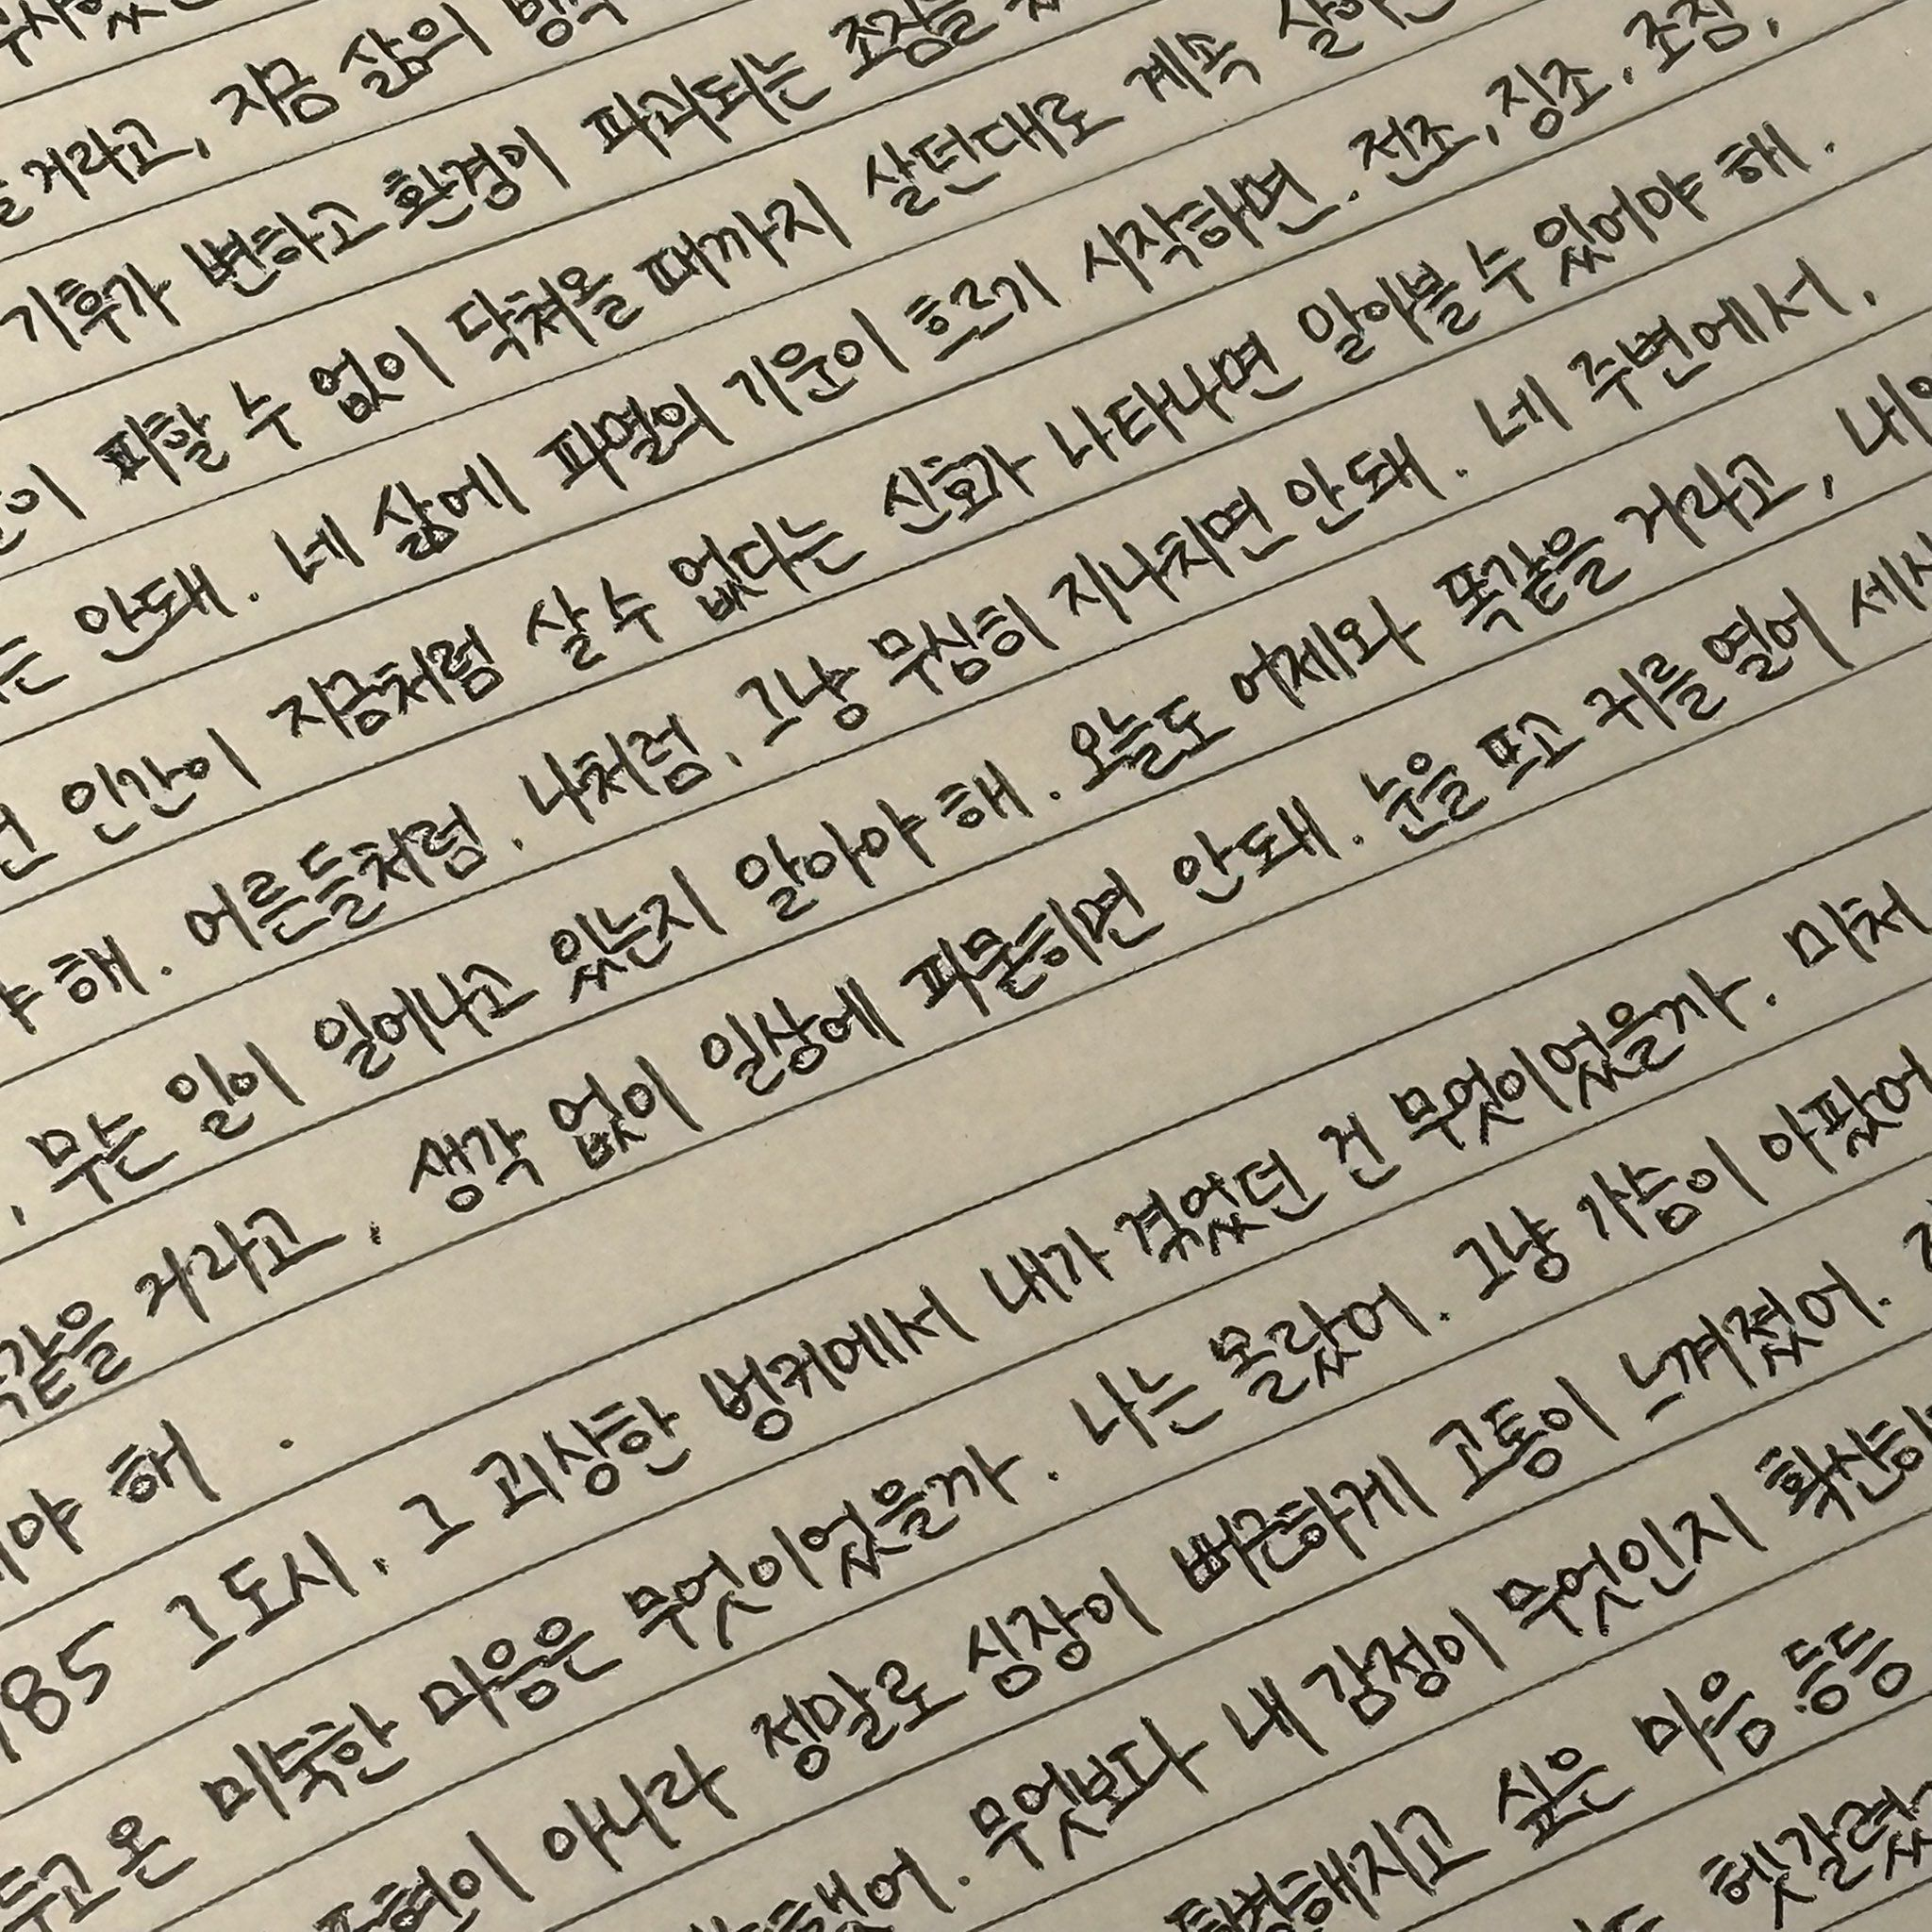 거라고, 지금 삶의
기후가 변하고 환경이 파괴되는 조짐을
피할 수 없이 닥쳐올 때까지 살던대로 계속
는 안돼. 네 삶에 파멸의 기운이 흐르기 시작하면. 전조, 징조, 조짐,
인간이 지금처럼 살 수 없다는 신호가 나타나면 알아볼 수 있어야 해.
야 해. 어른들처럼, 나처럼, 그냥 무심히 지나치면 안돼. 네 주변에서,
, 무슨 일이 일어나고 있는지 알아야 해. 오늘도 어제와 똑같을 거라고, 내일
똑같을 거라고, 생각 없이 일상에 파묻히면 안돼. 눈을 뜨고 귀를 열어
야 해.
185 그 도시, 그 괴상한 벙커에서 내가 겪었던 건 무엇이었을까. 미처
두고 온 미숙한 마음은 무엇이었을까. 나는 몰랐어. 그냥 가슴이 아팠어
표현이 아니라 정말로 심장이 뻐근하게 고통이 느껴졌어.
했어. 무엇보다 내 감정이 무엇인지 확산하
특별해지고 싶은 마음 등등
헷갈렸